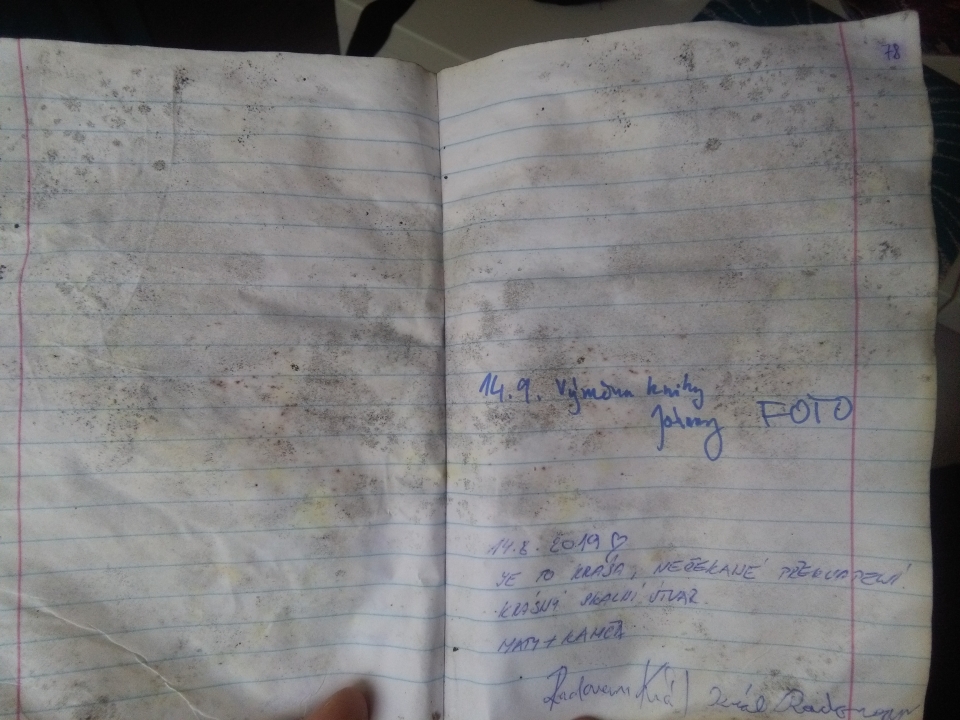 78
14.9. Výměna knihy
FOTO
14.8. 2019 ♡
JE TO KRÁSA, NEČEKANÉ PŘEKVAPENÍ
KRÁSNÝ SKALNÍ ÚTVAR
MATY + KAMČA
Radovan Král Král Radovan